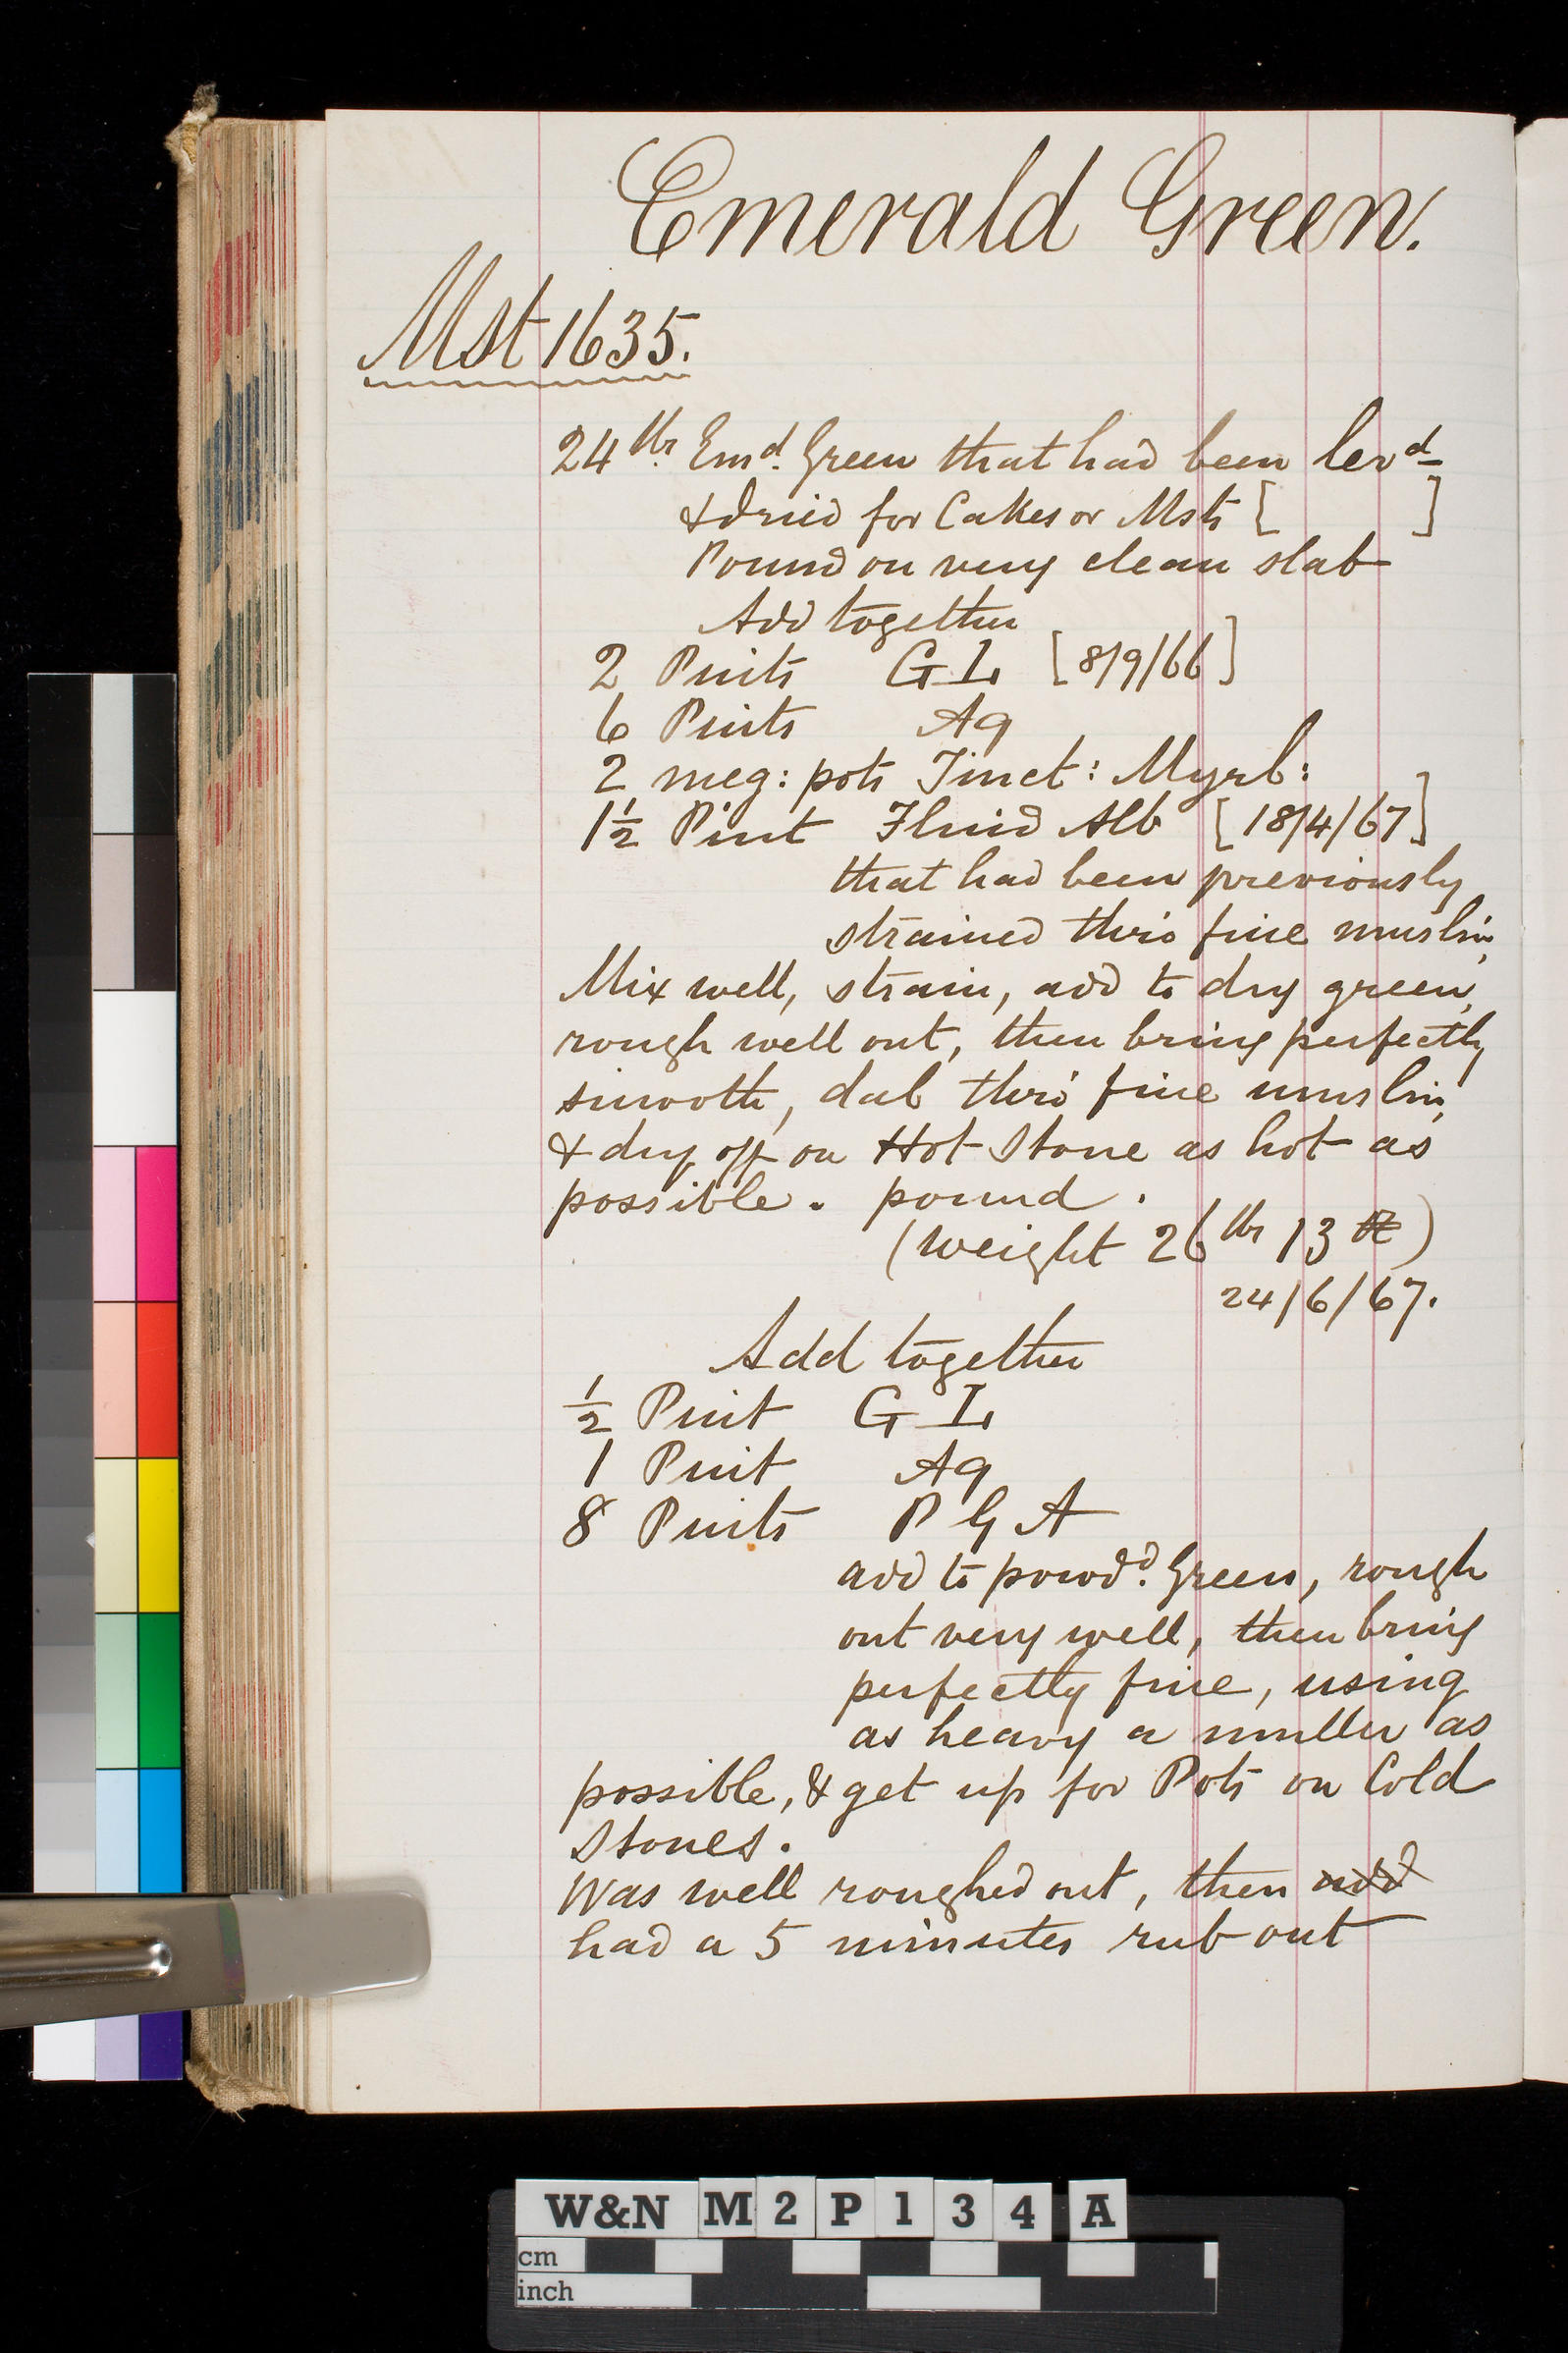 Emerald Green.
Mst 1635.
24 lbs Emd. Green that had been levd
& dried for Cakes or Msts [ ]
Pound on very clean slab
Add together
2 Pints GL [8/9/66]
6 Pints Aq
2 meg: pots Tinct: Myrb:
1½ Pint Fluid Alb [18/4/67]
that had been previously
strained thro' fine muslin,
Mix well, strain, add to dry green,
rough well out, then bring perfectly
smooth, dab thro' fine muslin,
& dry off on Hot Stone as hot as
possible. pound.
(weight 26 lbs 13 oz)
24/6/67.
Add together
½ Pint GL
1 Pint Aq
8 Pints P G A
add to powdd. Green, rough
out very well, then bring
perfectly fine, using
as heavy a muller as
possible, & get up for Pots on Cold
Stones.
Was well roughed out, then add
had a 5 minutes rub out
W&N M2P134A
cm
inch